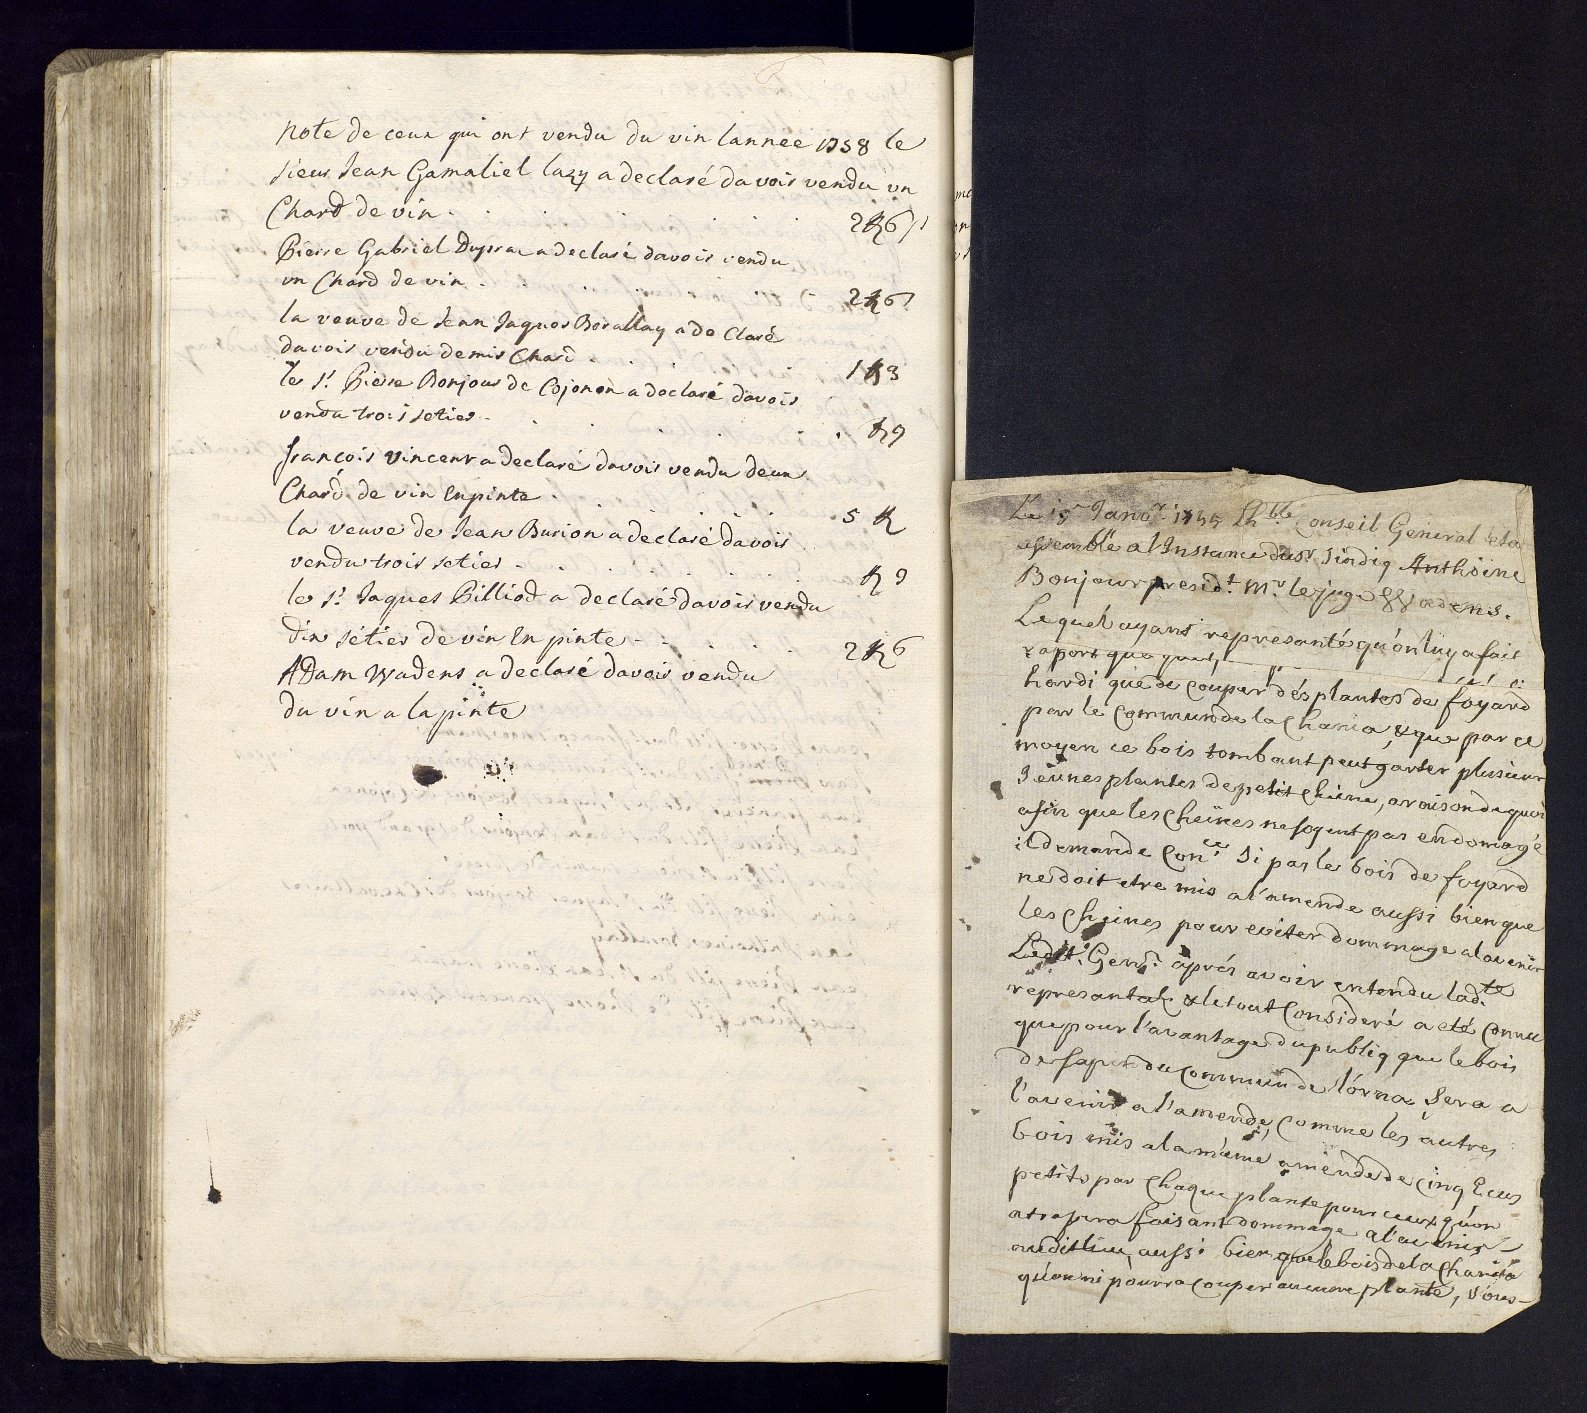 note de ceux qui ont vendu du vin lannee 1758 le
sieur Jean Gamaliel lazy a declaré davoir vendu un
Chard de vin . . . . 2 6
Pierre Gabriel Dupra a declaré davoir vendu
un Chard de vin . . . 2 6
la veuve de Jean Jaques Borallay a de claré
davoir vendu demis Chard . . . 1 3
le sr. Pierre Bonjour de Cojonon a declaré davoir
vendu trois setier . . . . 9
françois vincent a declaré davoir vendu deux
Chard de vin En pinte . . . 5
la veuve de Jean Burion a declaré davoir
vendu trois setier . . . 9
le sr. Jaques Billiod a declaré davoir vendu
dix sétier de vin En pinte . . . 2 6
ADam Wadens a declaré davoir vendu
du vin a la pinte
Le 15e Janvr. 1755 Lhble Conseil General seta
assemblé a l'Instance du sr Sindiq Anthoine
Bonjour presidt. Mr le juge Wadens.
Lequel ayant represanté qu'on luy a fait
raport que
hardi que de couper dés plantes de foyard
par le commun de la Chania, & que par ce
moyen ce bois tombant peut garter plusieur
Jeunes plantes de petit chêne, a raison de quoi
afin que les Cheines ne soyent pas endomagé
il demande Conce. Si par le bois de foyard
ne doit etre mis a l'amende aussi bien que
les cheines pour eviter dommage a lavenir
Ledit. Genl. aprés avoir entendu ladte
represantat & le tout Consideré a eté connu
que pour l'avantage du publiq que le bois
de sapin du commun de lorna, Sera a
l'avenir a l'amende, comme les autres
bois mis a la même amende de cinq Ecus
petits par chaque plante pour ceux qu'on
atrapera faisant dommage a l'avenir
audit lieu, aussi bien que le bois de la Chania
qu'on ni pourra couper aucune plante, sous